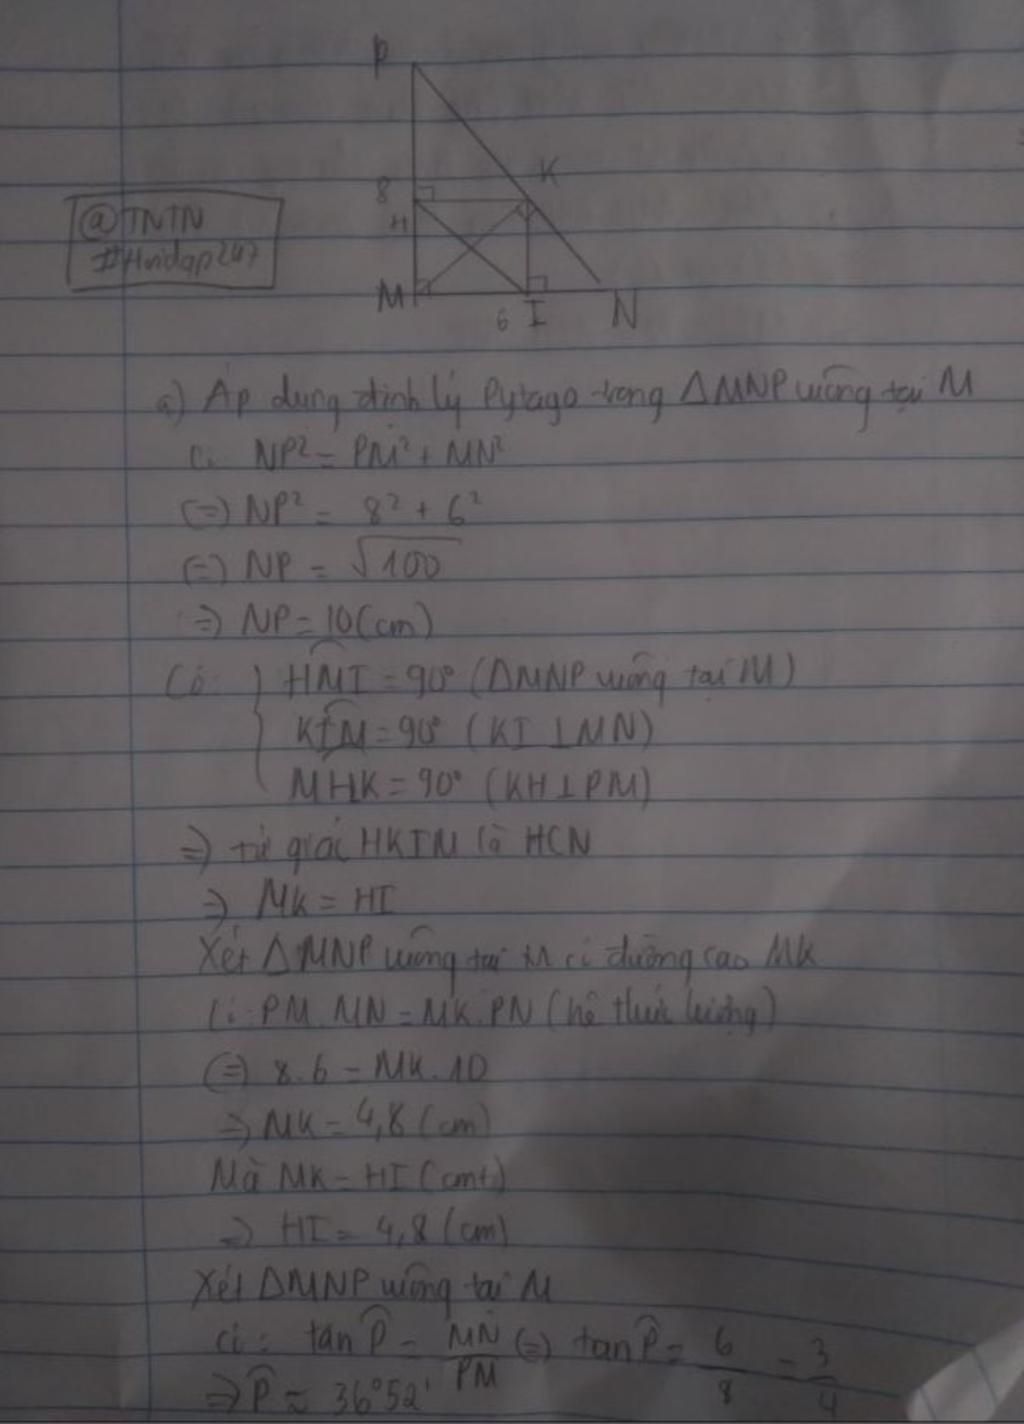 P
K
8
H
@TNTN
#Hoidap247
M
6 I
N
a) Áp dụng định lý Pytago trong ΔMNP vuông tại M
Có: NP² = PM² + MN²
(=) NP² = 8² + 6²
(=) NP = √100
=) NP = 10(cm)
Có: { HMI = 90° (ΔMNP vuông tại M)
KIM = 90° (KI ⊥ MN)
MHK = 90° (KH ⊥ PM)
=) tứ giác HKIM là HCN
=) MK = HI
Xét ΔMNP vuông tại M có đường cao MK
Có: PM.MN = MK.PN (hệ thức lượng)
(=) 8.6 = MK.10
=) MK = 4,8 (cm)
Mà MK = HI (cmt)
=) HI = 4,8 (cm)
Xét ΔMNP vuông tại M
Có: tan P̂ = MN/PM (=) tan P̂ = 6/8 = 3/4
=) P̂ ≈ 36°52'